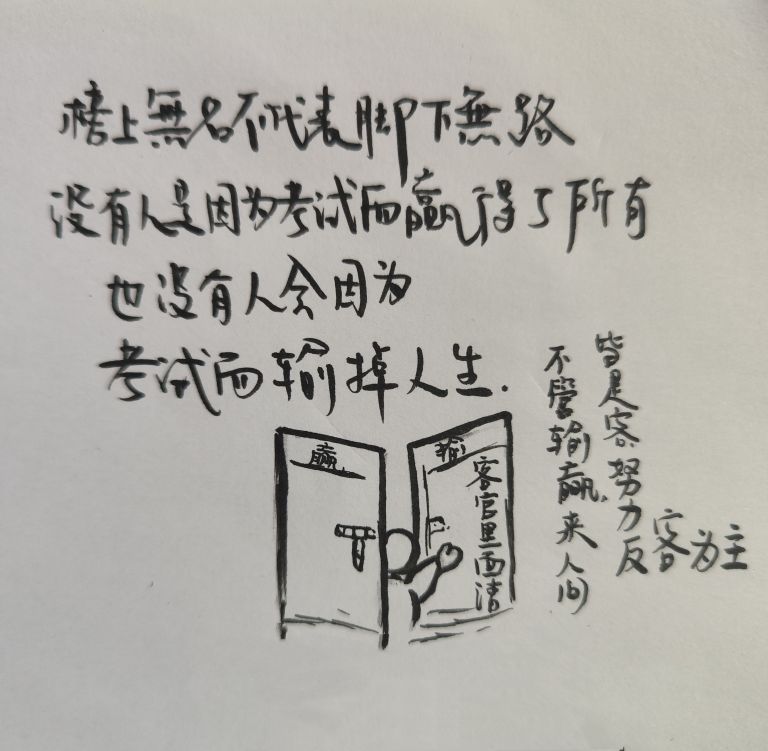 榜上無名不代表脚下無路
没有人是因为考试而赢得了所有
也没有人会因为
考试而输掉人生.
赢
输
客官里面请
不管输赢,来人间
皆是客努力反客为主